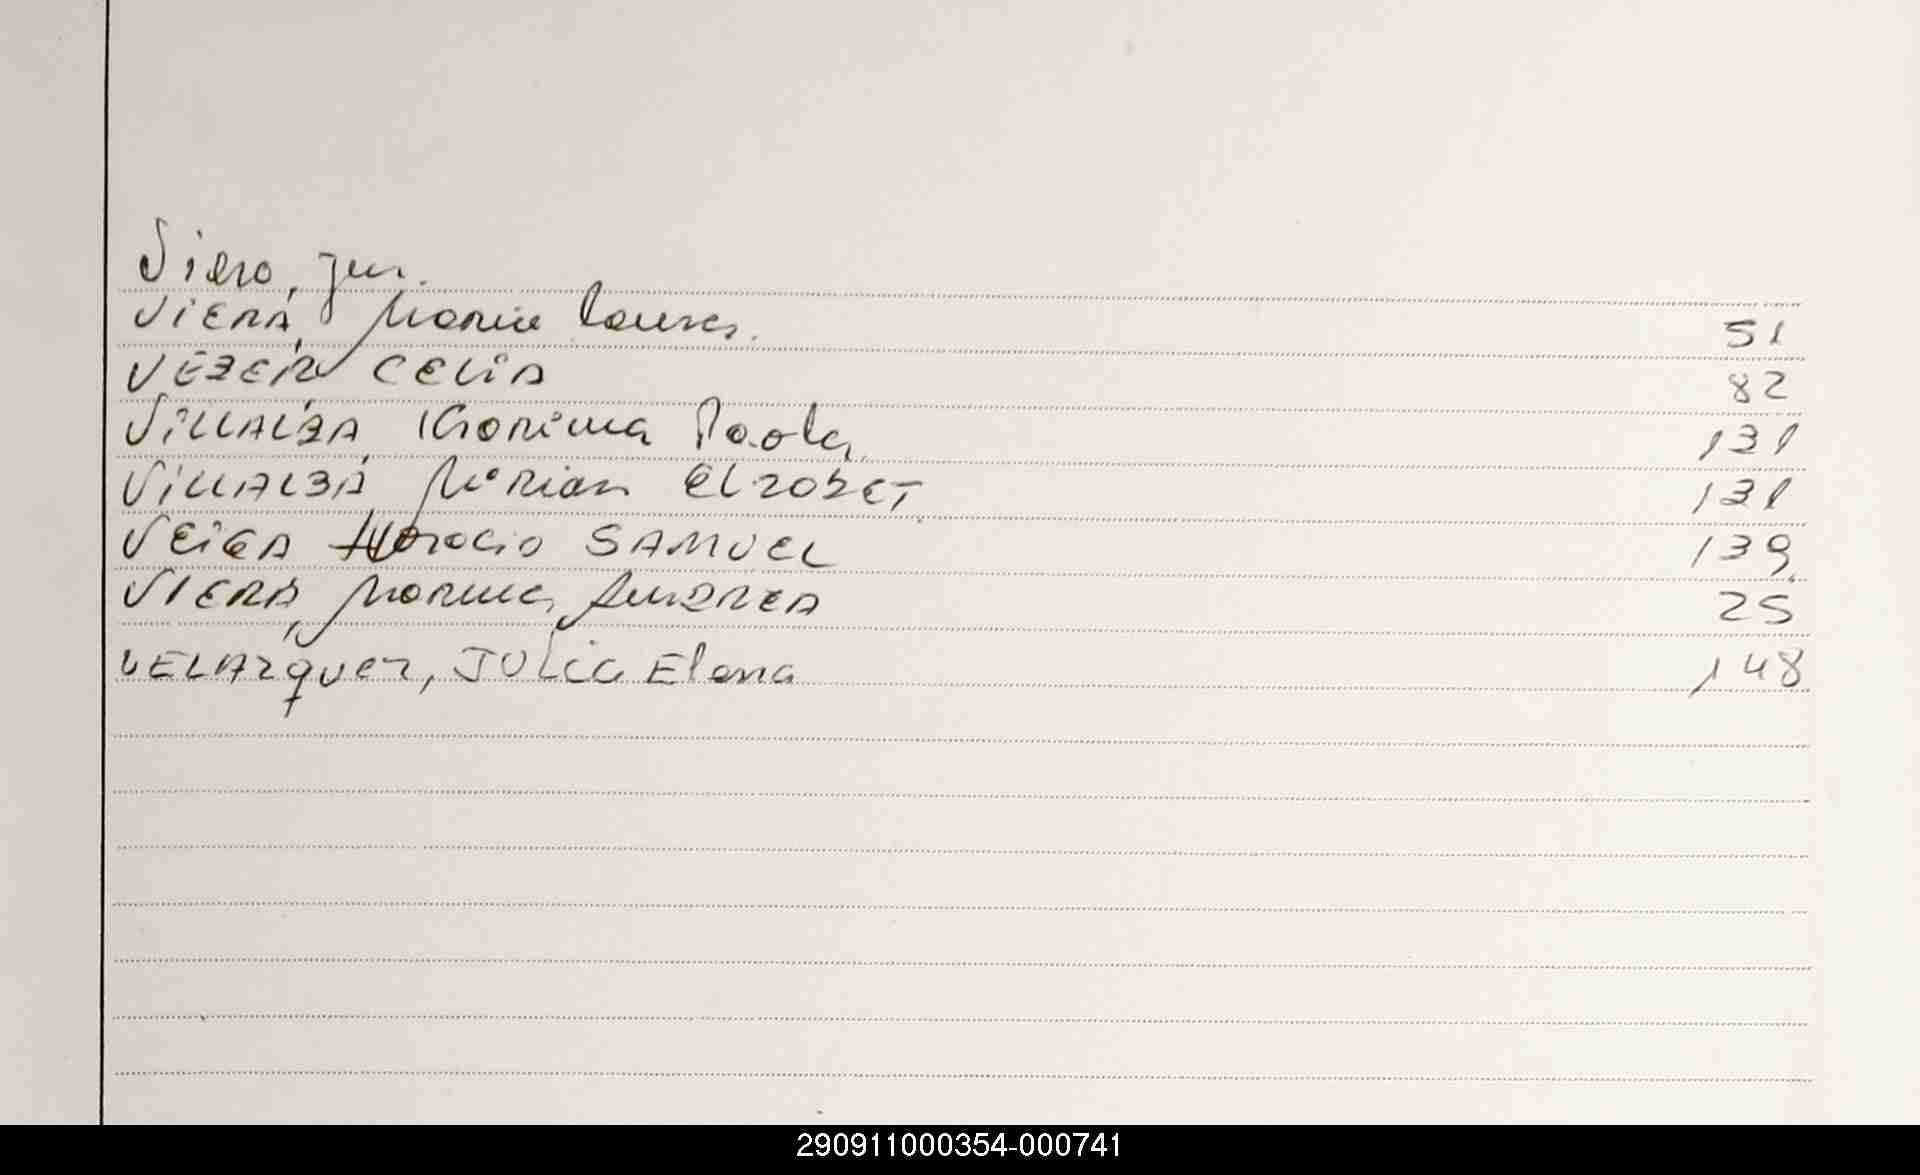 Viera, Jua.
VIERA, Maria Lourdes. 51
VEZER, CELIA 82
VILLALBA, Karina Paola 131
VILLALBA Mirian ELIZABET 131
VEIGA Horacio SAMUEL 139
VIERA, Marina ANDREA 25
VELAZquez, JULia Elena 148
290911000354-000741